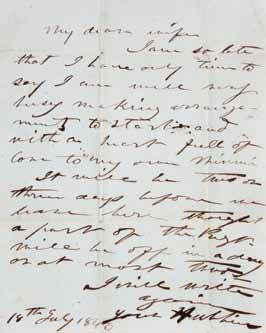 My dear wife
I am so late
that I have only time to
say I am well very
busy making arrange
ments to start and
with a heart full of
love to my own Minnie
It will be two or
three days before we
leave here though
a part of the Regt
will be off in a day
or at most two
I will write
again
Your Husban
18th July 1846